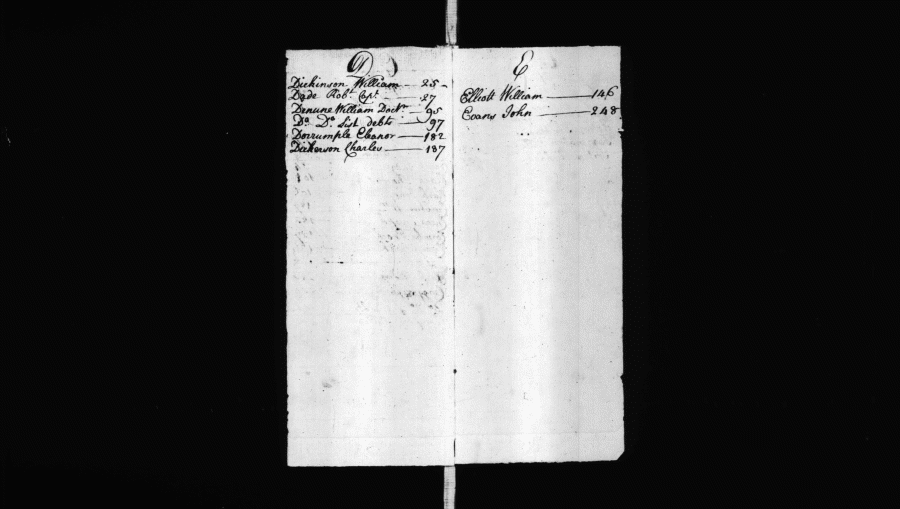 D
Dickinson William — 25
Dade Robt. Capt. — 27
Denune William Doctr — 95
Do. Do. List debts — 97
Dorrumple Eleanor — 182
Dickerson Charles — 187
E
Elliott William — 146
Evans John — 248